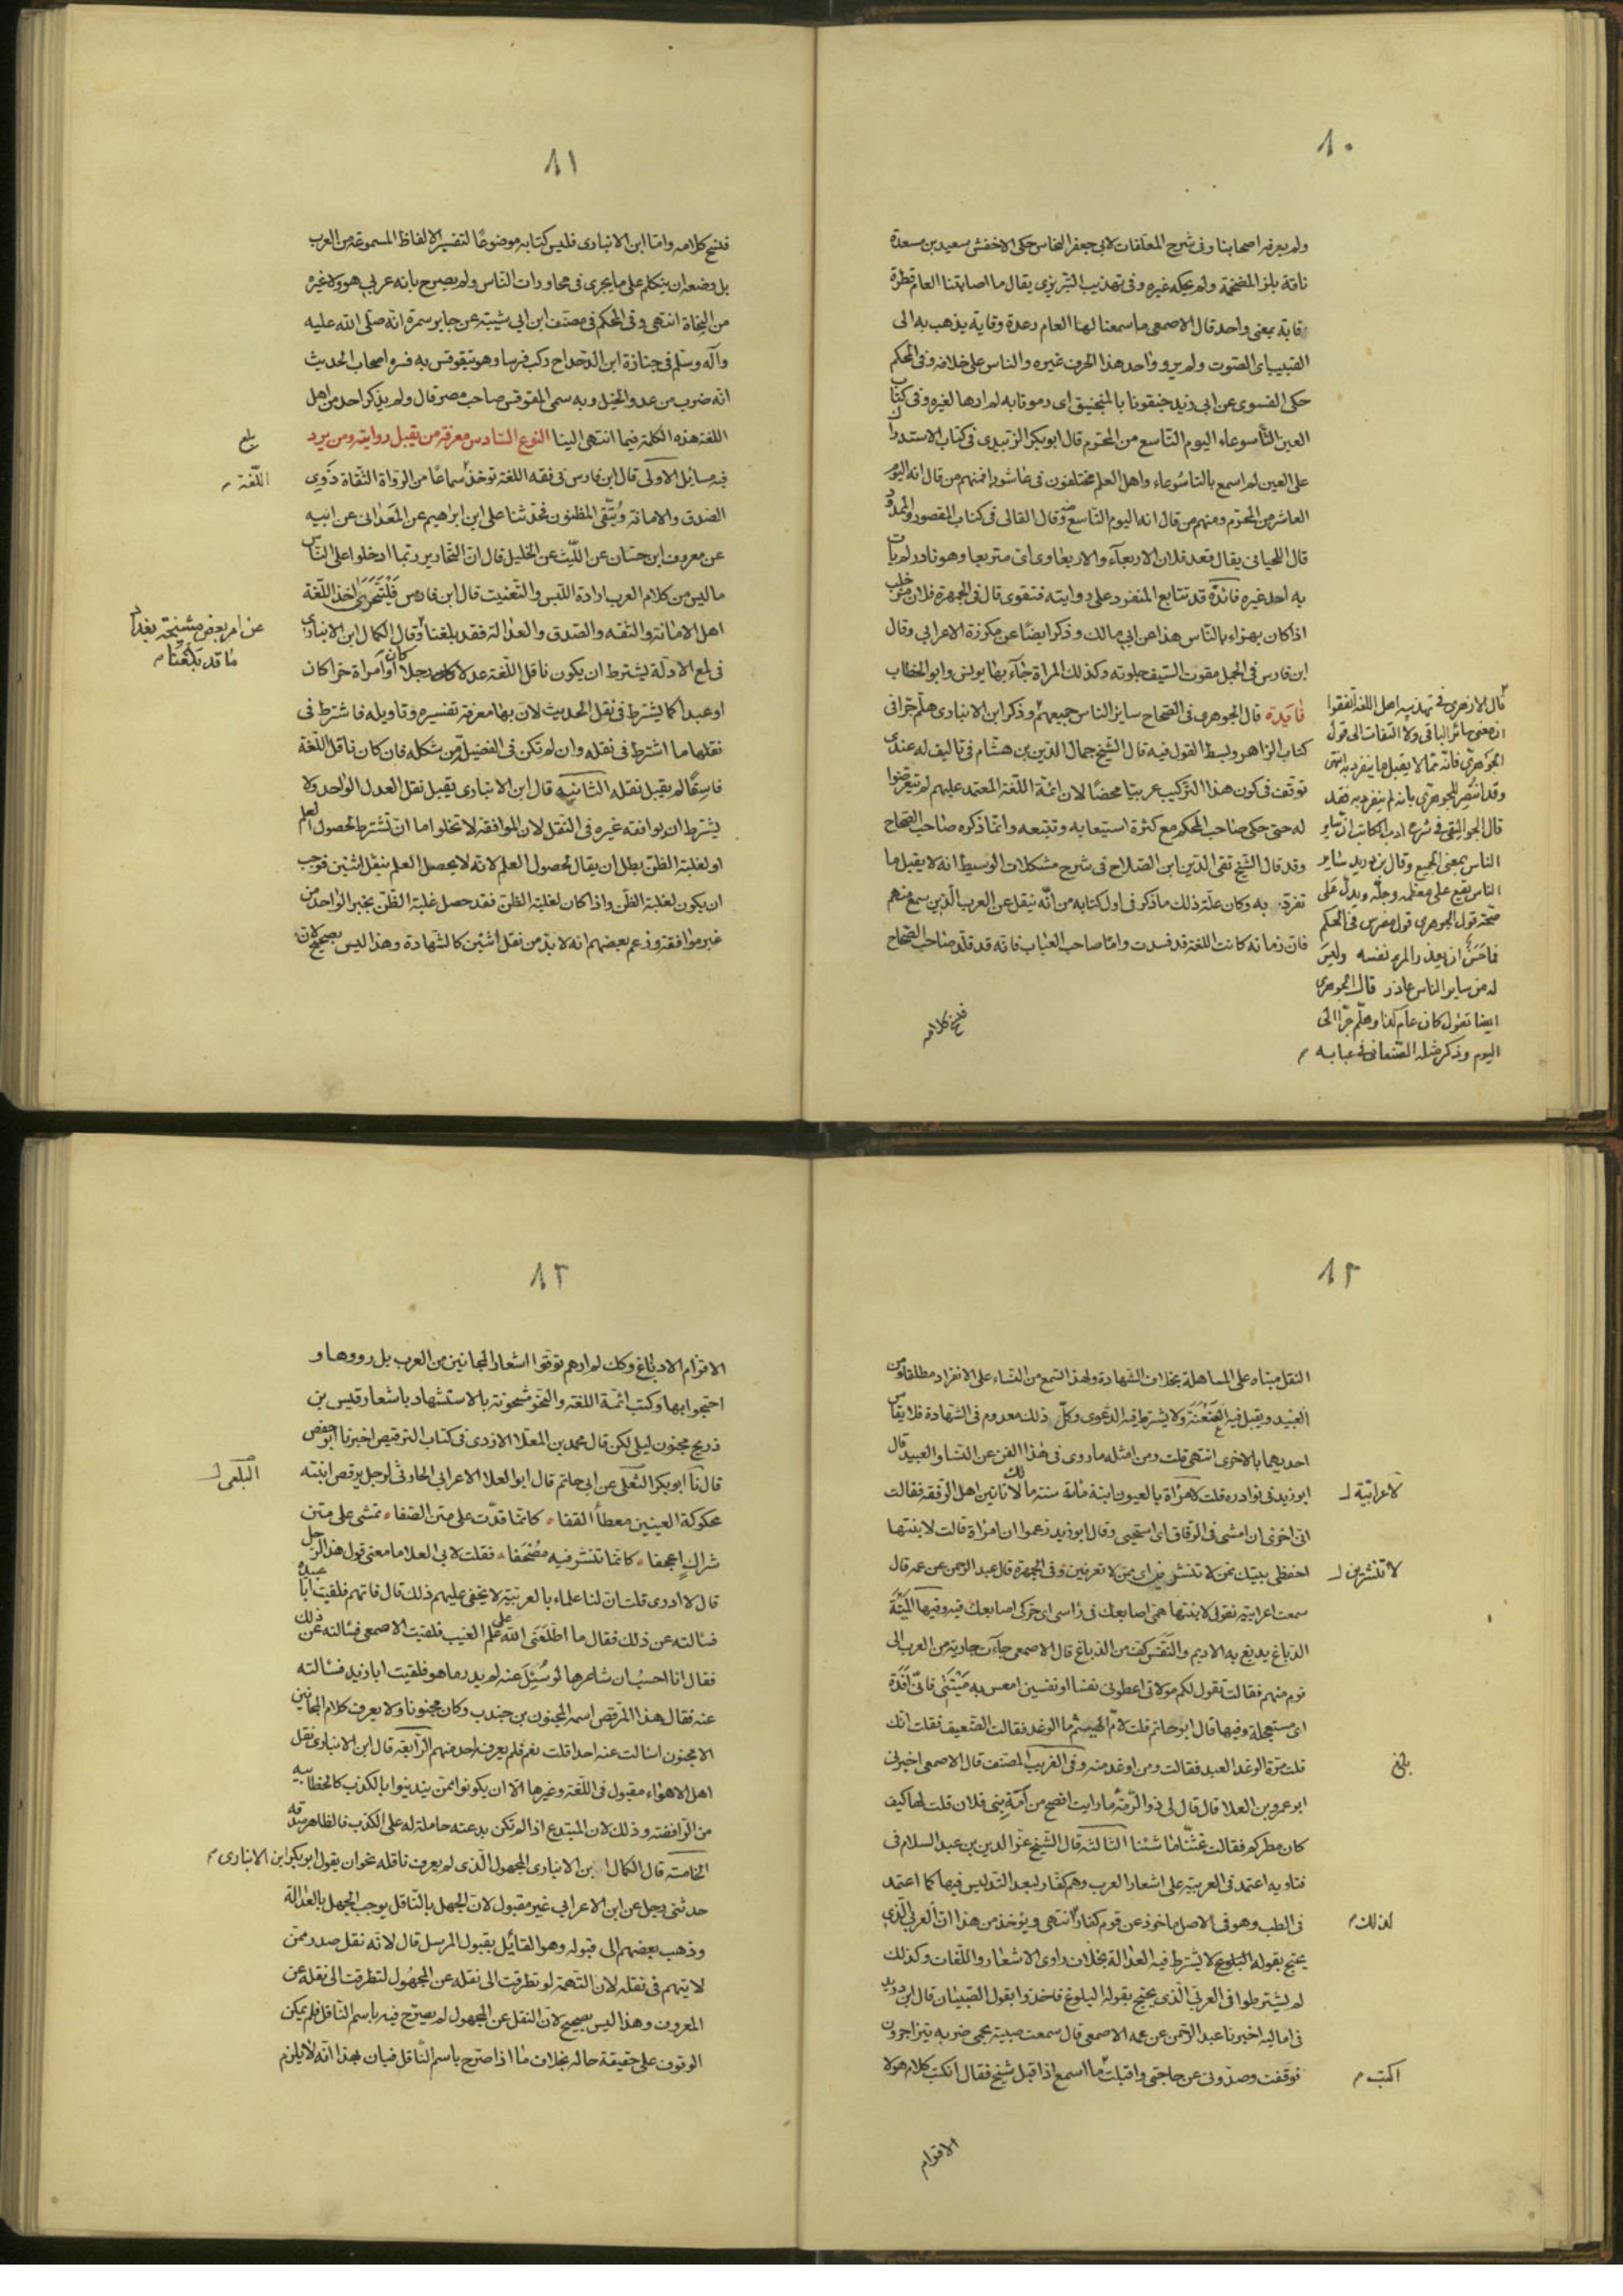 ٨٠
ولم يعرفه اصحابنا وفى شرح المعلقات لابى جعفر النحاس حكى الاخفش سعيد بن مسعدة
ناقة بلز للضخمة ولم يحكه غيره وفى تهذيب التبريزى يقال ما اصابتنا العام قطرة
قابة بمعنى واحد قال الاصمعى ما سمعنا لها العام رعدة وقابة يذهب به الى
القبيب اى الصوت ولم يرو واحد هذا الحرف غيره والناس على خلافه وفى المحكم
حكى الفسوى عن ابى زيد جنقونا بالمنجنيق اى رمونا به لم ارها لغيره وفى كتاب
العين التاسوعاء اليوم التاسع من المحرم قال ابو بكر الزبيدى فى كتاب الاستدراك
على العين لم اسمع بالتاسوعاء واهل العلم مختلفون فى عاشورا فمنهم من قال انه اليوم
العاشر من المحرم ومنهم من قال انه اليوم التاسع وقال القالى فى كتاب المقصور والممدود
قال اللحيانى يقال قعد فلان الاربعآء والاربعاوى اى متربعا وهو نادر لم يات
به احد غيره فائدة قد تتابع المنفرد على روايته فتقوى قال فى الجمهرة فلان مزخلب
اذا كان يهزاء بالناس هذا عن ابى مالك وذكر ايضا عن مكوزة الاعرابي وقال
ابن فارس فى المجمل مقوت السيف جلوته وكذلك المراة جآء بها يونس وابو الخطاب
فايدة قال الجوهرى فى الصحاح سائر الناس جميعهم وذكر ابن الانبارى هلم جرا فى
كتاب الزاهر وبسط القول فيه قال الشيخ جمال الدين بن هشام فى تاليف له عندى
توقف فى كون هذا التركيب عربيا محضا لان ائمة اللغة المعتمد عليهم لم يتعرضوا
له حتى حكى صاحب المحكم مع كثرة استيعابه وتتبعه وانما ذكره صاحب الصحاح
وقد قال الشيخ تقى الدين ابن الصلاح فى شرح مشكلات الوسيط انه لا يقبل ما
تفرد به وكان علة ذلك ما ذكر فى اول كتابه من انه ينقل عن العرب الذين سمع منهم
فان زمانه كانت اللغة قد فسدت واما صاحب العباب فانه قد قلد صاحب الصحاح
فنسخ كلامه
قال الازهرى فى تهذيبه اهل اللغة اتفقوا
ان معنى سائر الباقى ولا التفات الى قول
الجوهرى فانه ممن لا يقبل ما ينفرد به انتهى
وقد انتصر للجوهرى بانه لم ينفرد به فقد
قال الجواليقى فى شرح ادب الكاتب ان سائر
الناس بمعنى الجميع وقال بن دريد سائر
الناس يقع على معظمه وجله ويدل على
صحة قول الجوهرى قول مضرس فى المحكم
فما حسن ان يعذر المرء نفسه وليس
له من ساير الناس عاذر قال الجوهرى
ايضا تقول كان عام كذا وهلم جرا الى
اليوم وذكر مثله الصنعانى فى عبابه
٨١
فنسخ كلامه واما ابن الانبارى فليس كتابه موضوعا لتفسير الالفاظ المسموعة من العرب
بل وضعه ان يتكلم على ما يجرى فى محاورات الناس ولم يصرح بانه عربى هو ولا غيره
من النحاة انتهى وفى المحكم فى مصنف ابن ابى شيبة عن جابر سمرة انه صلى الله عليه
وآله وسلم فى جنازة ابن الدحداح ركب فرسا وهو يتقوقس به فسره اصحاب الحديث
انه ضرب من عدو الخيل وبه سمى المقوقس صاحب مصر قال ولم يذكر احد من اهل
اللغة هذه الكلمة فيما انتهى الينا النوع السادس معرفة من تقبل روايته ومن يرد
بلغ
فيه مسايل الاولى قال ابن فارس فى فقه اللغة توخذ سماعا من الرواة الثقاة ذوى
اللغة
الصدق والامانة ويتقى المظنون فحدثنا على ابن ابراهيم عن المعدانى عن ابيه
عن معروف ابن حسان عن الليث عن الخليل قال ان النحارير ربما ادخلوا على الناس
ما ليس من كلام العرب ارادة اللبس والتعنيت قال ابن فارس فليتحر اخذ اللغة
اهل الامانة والثقة والصدق والعدالة فقد بلغنا وقال الكمال ابن الانبارى
عن امر بعض مشيخة بغداد
ما قد بلغنا
فى لمع الادلة يشترط ان يكون ناقل اللغة عدلا كان رجلا او امراة حرا كان
او عبدا كما يشترط فى نقل الحديث لان بها معرفة تفسيره وتاويله فاشترط فى
نقلها ما اشترط فى نقله وان لم تكن فى الفضيلة من شكله فان كان ناقل اللغة
فاسقا لم يقبل نقله الثانية قال ابن الانبارى يقبل نقل العدل الواحد ولا
يشترط ان يوافقه غيره فى النقل لان الموافقة لا تخلوا اما ان تشترط لحصول العلم
او لغلبة الظن بطل ان يقال لحصول العلم لانه لا يحصل العلم بنقل اثنين فوجب
ان يكون لغلبة الظن واذا كان لغلبة الظن فقد حصل غلبة الظن بخبر الواحد من
غير موافقة وزعم بعضهم انه لا بد من نقل اثنين كالشهادة وهذا ليس بصحيح لان
٨٢
النقل مبناه على المساهلة بخلاف الشهادة ولهذا تسمع من النساء على الانفراد مطلقا ومن
العبيد ويقبل فيه العنعنة ولا يشترط فيه الدعوى وكل ذلك معدوم فى الشهادة فلا يقاس
احديهما بالاخرى انتهى قلت ومن امثله ما روى فى هذا الفن عن النساء والعبيد قال
ابو زيد فى نوادره قلت لامراة بالعيون ابنة مائة سنة ما لك لا تاتين اهل الرفقة فقالت
لاعرابية
انى اخزى ان امشى فى الرفاق اى استحيى وقال ابو زيد زعموا ان امراة قالت لابنتها
احفظى بيتك ممن لا تنشرين اى ممن لا تعرفين وفى الجمهرة قال عبد الرحمن عن عمه قال
لا تنشرين
سمعت اعرابية تقول لابنتها همى اصابعك فى راسى اى حركى اصابعك فيه وفيها المنيئة
الدباغ يدبغ به الاديم والنفس كف من الدباغ قال الاصمعى جآءت جارية من العرب الى
قوم منهم فقالت تقول لكم مولاتى اعطونى نفسا او نفسين امعس به منيئتى فانى افدة
اى مستعجلة وفيها قال ابو حاتم قلت لام الهيثم ما الوغد فقالت الضعيف فقلت انك
قلت مرة الوغد العبد فقالت ومن اوغد منه وفى الغريب المصنف قال الاصمعى اخبرنى
بلغ
ابو عمرو بن العلا قال قال لى ذو الرمة ما رايت افصح من امة بنى فلان قلت لها كيف
كان مطركم فقالت غثنا ما شئنا الثالثة قال الشيخ عز الدين بن عبد السلام فى
فتاويه اعتمد فى العربية على اشعار العرب وهم كفار لبعد التدليس فيها كما اعتمد
فى الطب وهو فى الاصل ماخوذ عن قوم كفار انتهى ويؤخذ من هذا ان العربى الذى
لذلك
يحتج بقوله البلوغ لا يشترط فيه العدالة بخلاف راوى الاشعار واللغات وكذلك
لم يشترطوا فى العربى الذى يحتج بقوله البلوغ فاخذوا بقول الصبيان قال ابن دريد
فى اماليه اخبرنا عبد الرحمن عن عمه الاصمعى قال سمعت صبية بحمى ضريه يتراجزون
فوقفت وصدونى عن حاجتى واقبلت ما اسمع اذ اقبل شيخ فقال أتكتب كلام هولا
اكتب
الاقوام
٨٣
الاقزام الادناع وكك لم ارهم توقوا اشعار المجانين من العرب بل رووها و
احتجوا بها وكتب ائمة اللغة والنحو مشحونة بالاستشهاد باشعار قيس بن
ذريح مجنون ليلى لكن قال محمد بن المعلا الازدى فى كتاب الترقيص اخبرنا ابو حفص
قال نا ابو بكر الثعلى عن ابى حاتم قال ابو العلا الاعرابى الحارثى لرجل يرقص ابنته
محكوكة العينين معطآ القفا كانما قدت على متن الصفا تمشى على متن
شراك اعجفا كانما تنشر فيه مصحفا فقلت لابى العلا ما معنى قول هذا الرجل
قال لا ادرى قلت ان لنا علماء بالعربية لا يخفى عليهم ذلك قال فاتهم فلقيت ابا عبيدة
فسالته عن ذلك فقال ما اطلعنى الله على علم الغيب فلقيت الاصمعى فسالته عن ذلك
فقال انا احسب ان شاعرها لو سئل عنه لم يدر ما هو فلقيت ابا زيد فسالته
عنه فقال هذا المرقص اسمه المجنون بن جندب وكان مجنونا ولا يعرف كلام المجانين
الا مجنون اسالت عنه احدا قلت نعم فلم يعرفه احد منهم الرابعة قال ابن الانبارى نقل
اهل الاهواء مقبول فى اللغة وغيرها الا ان يكونوا ممن يتدينوا بالكذب كالخطابية
من الرافضة وذلك لان المبتدع اذا لم تكن بدعته حاملة له على الكذب فالظاهر صدقه
الخامسة قال الكمال ابن الانبارى المجهول الذى لم يعرف ناقله نحو ان يقول ابو بكر ابن الانبارى
حدثنى رجل عن ابن الاعرابى غير مقبول لان الجهل بالناقل يوجب الجهل بالعدالة
وذهب بعضهم الى قبوله وهو القائل بقبول المرسل قال لانه نقل صدر ممن
لا يتهم فى نقله لان التهمة لو تطرقت الى نقله عن المجهول لتطرقت الى نقله عن
المعروف وهذا ليس بصحيح لان النقل عن المجهول لم يصرح فيه باسم الناقل فلم يمكن
الوقوف على حقيقة حاله بخلاف ما اذا صرح باسم الناقل فبان بهذا انه لا يلزم